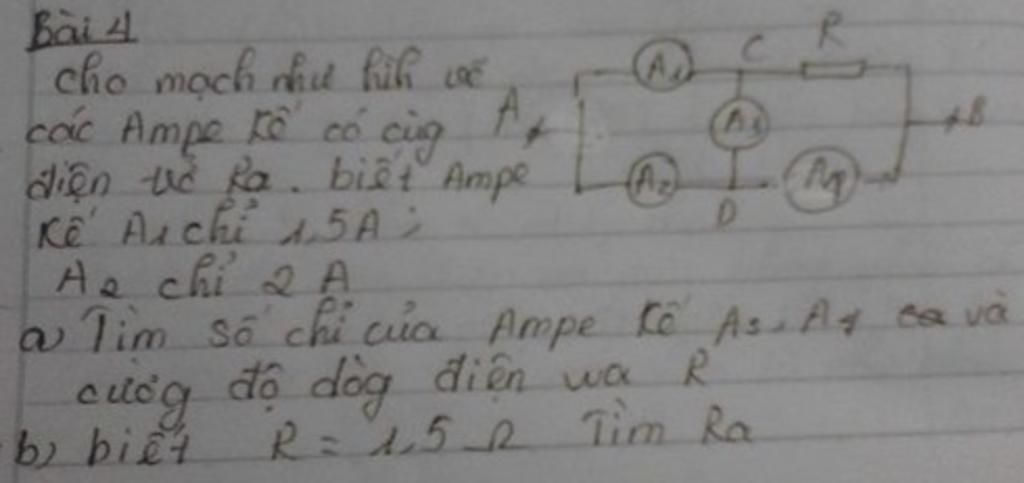 Bài 4
cho mạch như hìh vẽ
các Ampe Kế có cùg
điện trở Ra. biết Ampe
Kế A1 chỉ 1,5A ;
A2 chỉ 2 A
a) Tìm số chỉ của Ampe Kế A3, A4 và
cườg độ dòg điện wa R
b) biết R = 1,5 Ω Tìm Ra
A A1 C R
A3 B
A2 D A4